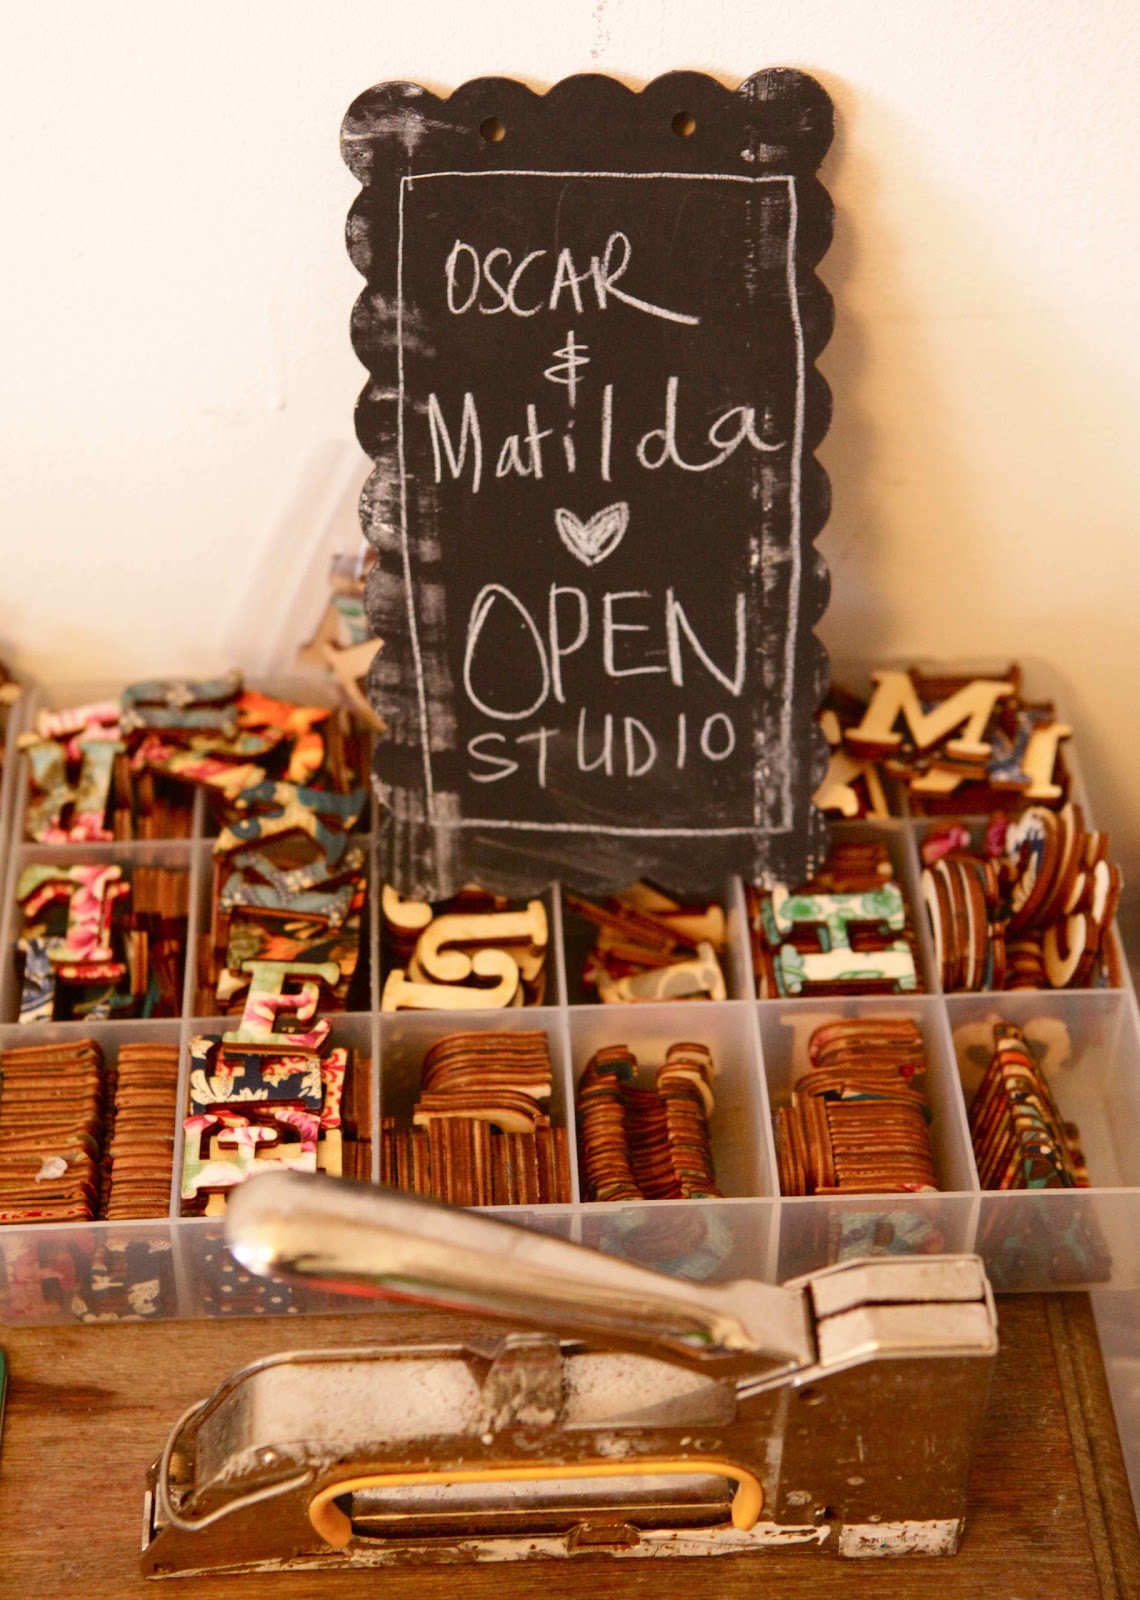 OSCAR
&
Matilda
OPEN
STUDIO